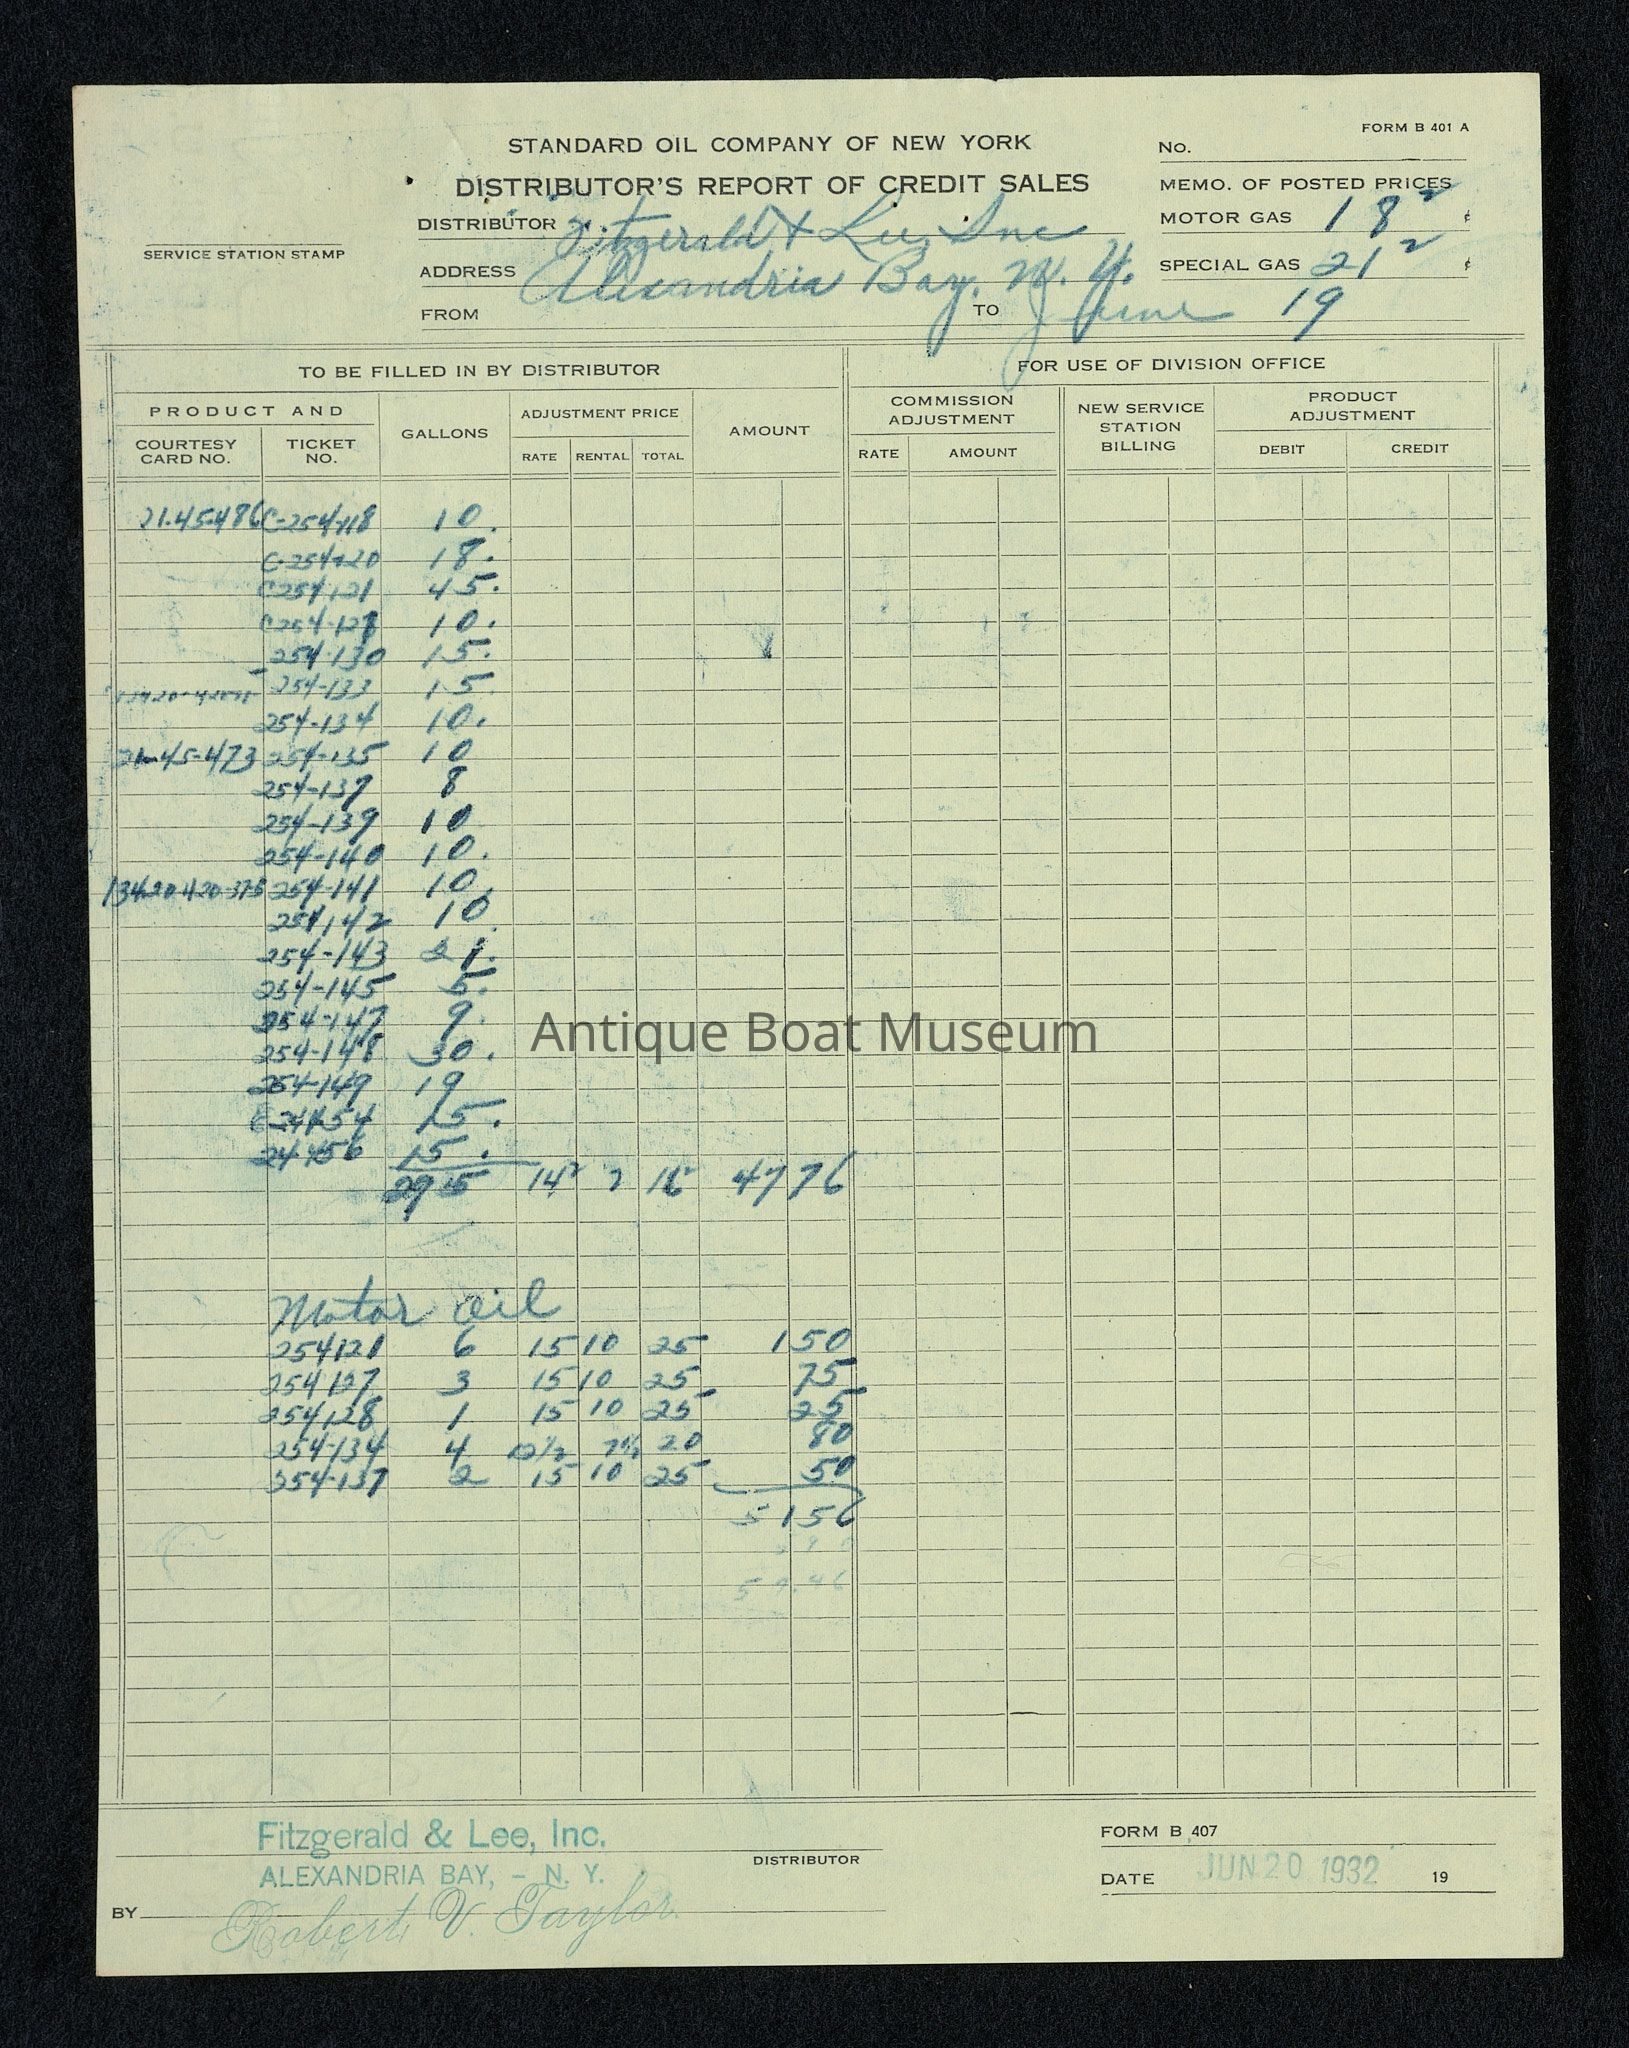 FORM B 401 A
STANDARD OIL COMPANY OF NEW YORK
No.
DISTRIBUTOR'S REPORT OF CREDIT SALES
MEMO. OF POSTED PRICES
DISTRIBUTOR Fitzgerald & Lee, Inc
MOTOR GAS 18² ¢
SERVICE STATION STAMP
ADDRESS Alexandria Bay, N. Y.
SPECIAL GAS 21² ¢
FROM TO June 19
TO BE FILLED IN BY DISTRIBUTOR FOR USE OF DIVISION OFFICE
PRODUCT AND GALLONS ADJUSTMENT PRICE AMOUNT COMMISSION ADJUSTMENT NEW SERVICE STATION BILLING PRODUCT ADJUSTMENT
COURTESY CARD NO. TICKET NO. RATE RENTAL TOTAL RATE AMOUNT DEBIT CREDIT
21-45-486 C-254-118 10.
C-254-120 18.
C254,121 45.
C254-128 10.
254-130 15.
254-133 15
254-134 10.
21-45-473 254-135 10
254-137 8
254-139 10
254-140 10.
254-141 10.
254,142 10.
254-143 21.
254-145 5.
254-147 9.
254-148 30.
254-149 19
15.
15.
295 14² 2 16² 4776
Motor Oil
254121 6 15 10 25 150
254127 3 15 10 25 75
254128 1 15 10 25 25
254-134 4 12½ 7½ 20 80
254-137 2 15 10 25 50
5156
Antique Boat Museum
Fitzgerald & Lee, Inc.
DISTRIBUTOR
ALEXANDRIA BAY, - N. Y.
BY Robert V. Taylor
FORM B 407
DATE JUN 20 1932 19